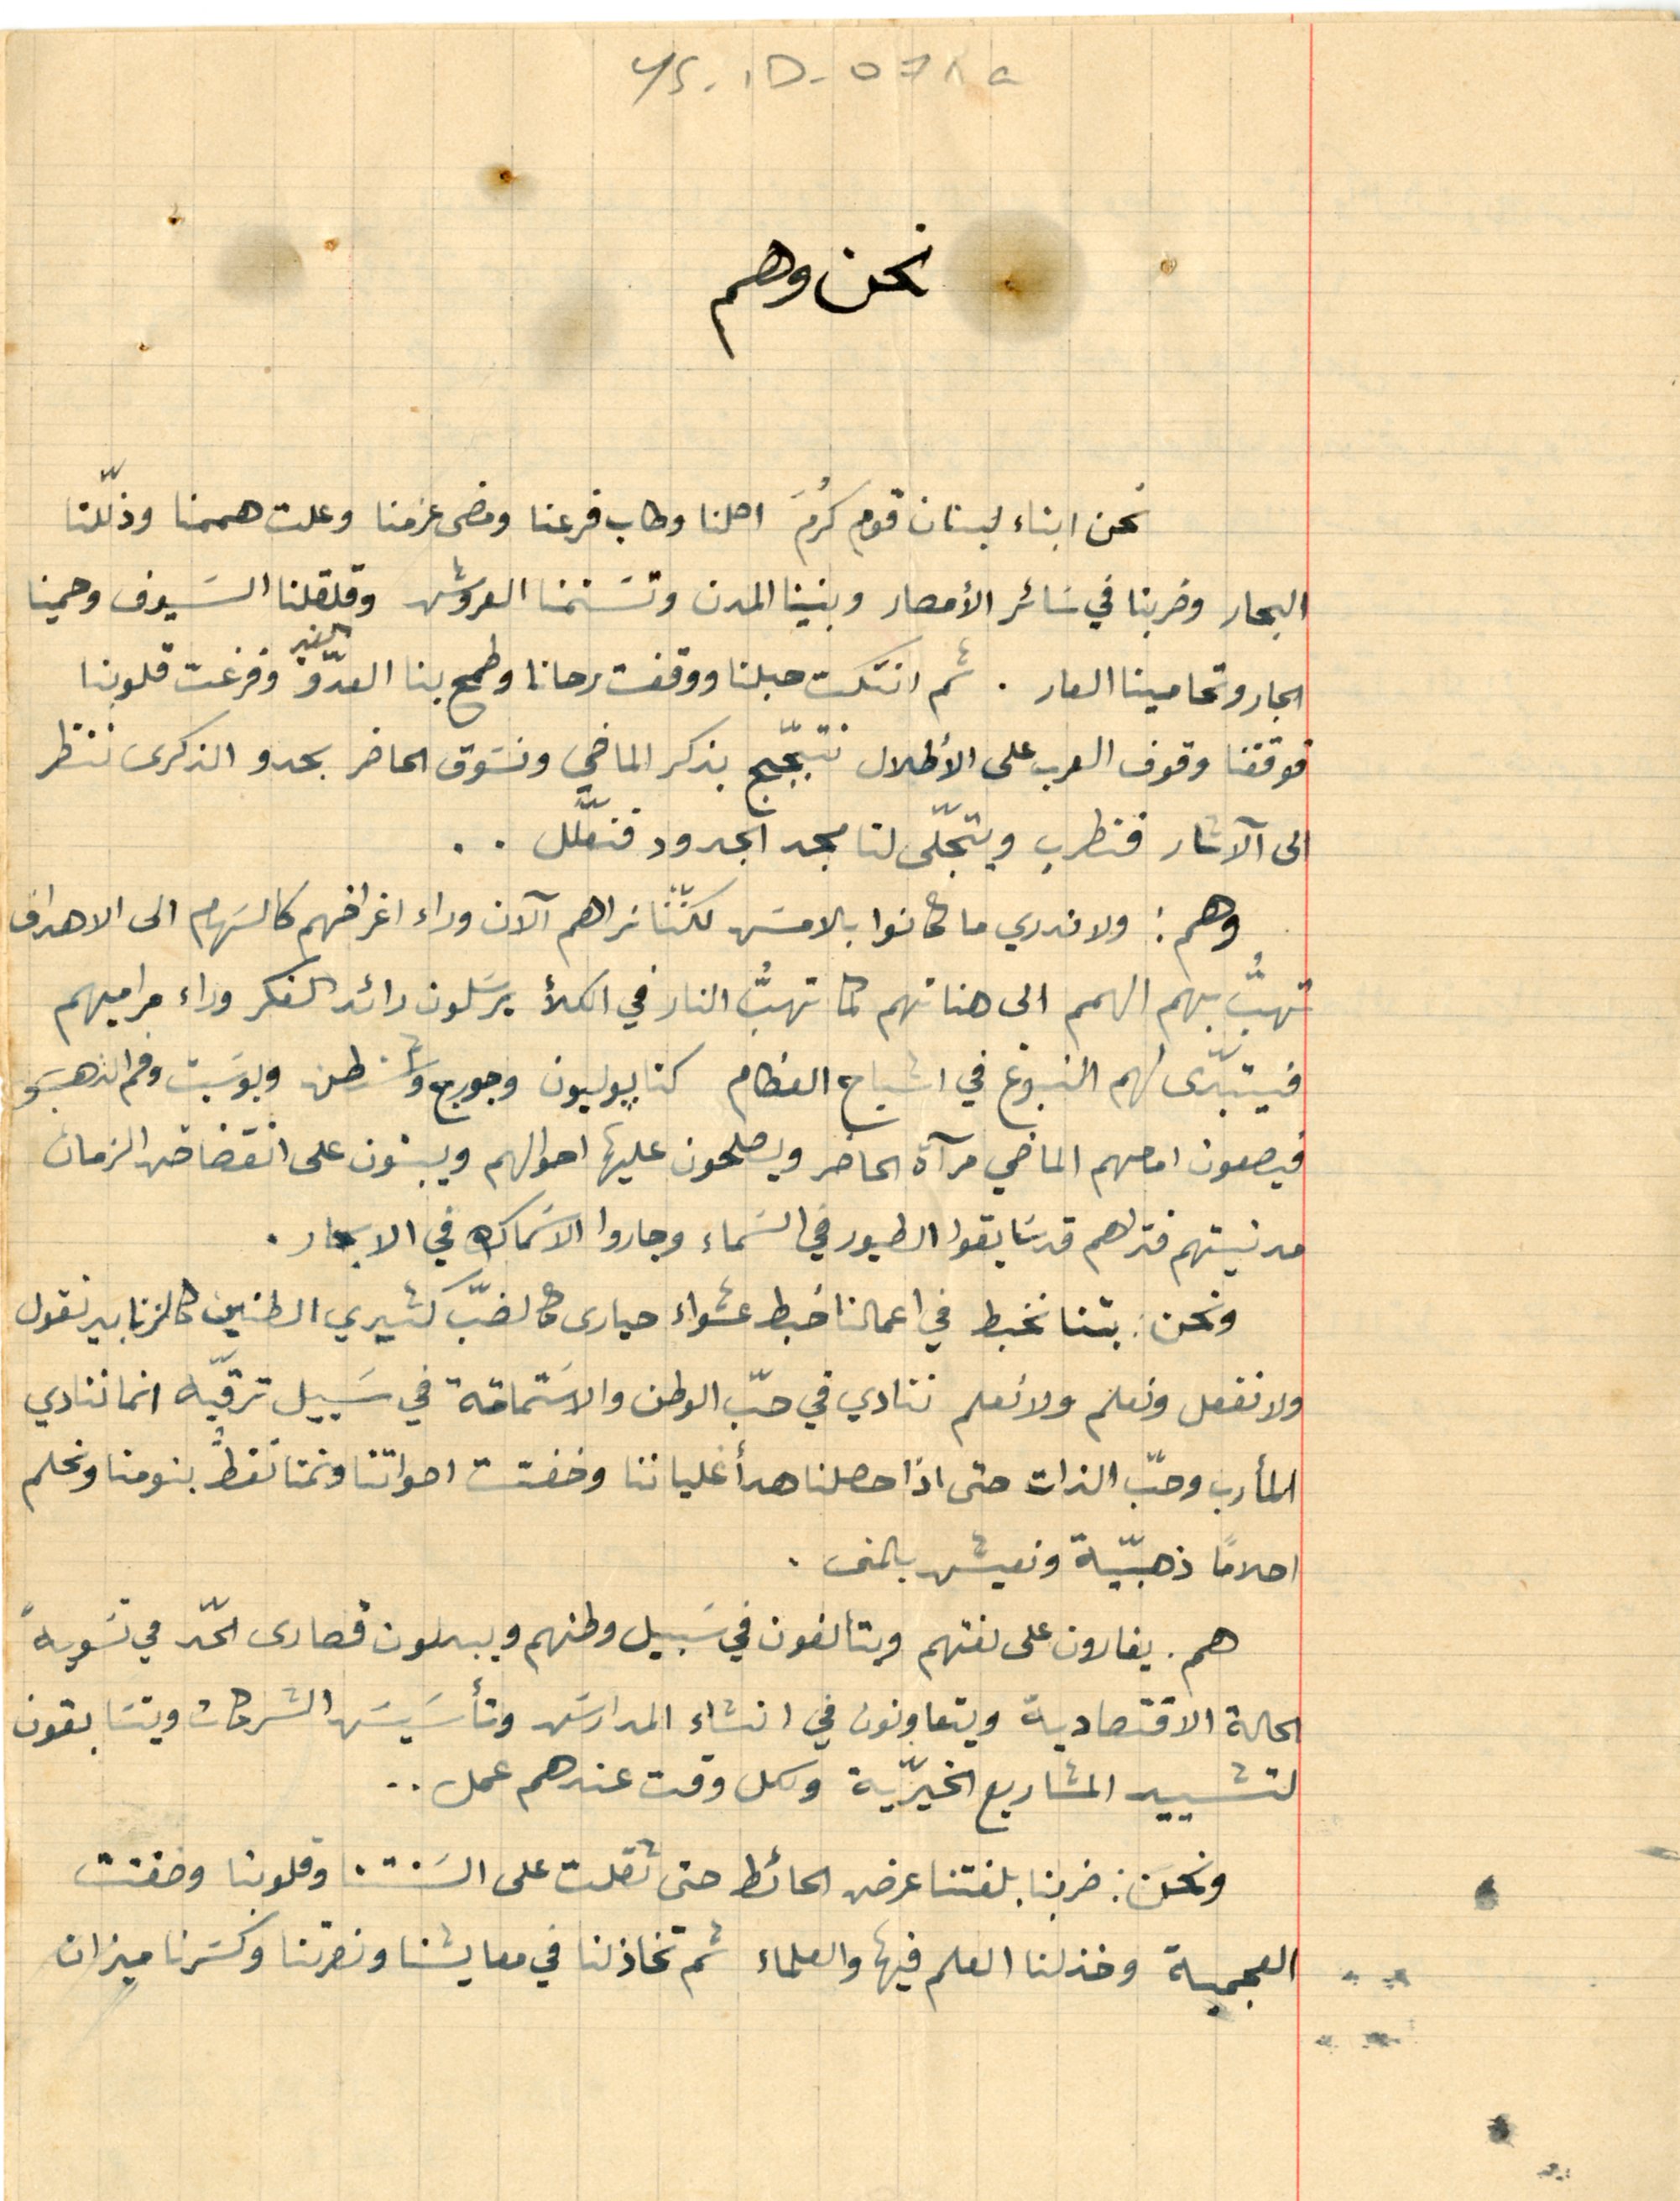 نحن وهم
نحن ابناء لبنان قوم كرُمَ اصلنا وطاب فرعنا ومضى عزمنا وعلت هممنا وذلّلنا
البحار وضربنا في سائر الأمصار وبنينا المدن وتسنمنا العروش وقلقلنا السيوف وحمينا
الجار وتحامينا العار . ثم انتكث حبلنا ووقفت رحانا وطمح بنا العدّو وفزعت قلوبنا
فوقفنا وقوف العرب على الأطلال نتبجّح بذكر الماضي ونسوق الحاضر بحدو الذكرى ننظر
الى الآثار فنطرب ويتجلّى لنا مجد الجدود فنعلّل . .
وهم : ولا ندري ما كانوا بالامس لكنّنا نراهم الآن وراء اغراضهم كالسهام الى الاهداف
تهبُّ بهم الهمم الى هناتهم كما تهبُّ النار في الكلأ يرسلون رائد الفكر وراء مراميهم
فيتبدّى لهم النبوغ في اشباح العظام كنابوليون وجورج واشنطن وبوسيت وفم الذهب
فيصعون امامهم الماضي مرآة الحاضر ويصلحون عليها احوالهم ويبنون على انقضاض الزمان
مدنيتهم فتراهم قد سابقوا الطيور في السماء وجاروا الاسماك في الابحار .
ونحن : بتنا نخبط في اعمالنا خبط عشواء حيارى كالضبّ كثيري الطنين كالزنابير نقول
ولا نفعل ونعلم ولا نعلم ننادي في حبّ الوطن والاستماتة في سبيل ترقّيه انما ننادي
المأرب وحبّ الذات حتى اذا حصلنا هدأ غلياننا وخفتت اصواتنا ونمنا نغطُّ بنومنا ونحلم
احلامًا ذهبيّة ونعيش بالمنى .
هم . يغارون على لغتهم ويتالفون في سبيل وطنهم ويبذلون قصارى الحّد في تسوية
الحالة الاقتصادية ويتعاونون في انشاء المدارس وتأسيس الشركات ويتسابقون
لتشييد المشاريع الخيرّية ولكل وقت عندهم عمل ..
ونحن : ضربنا بلغتنا عرض الحائط حتى ثقلت على السنتنا وقلوبنا وضفتت
العجمية وخذلنا العلم فيها والعلماء ثم تخاذلنا في معايشنا ونصرتنا وكسرنا ميزان